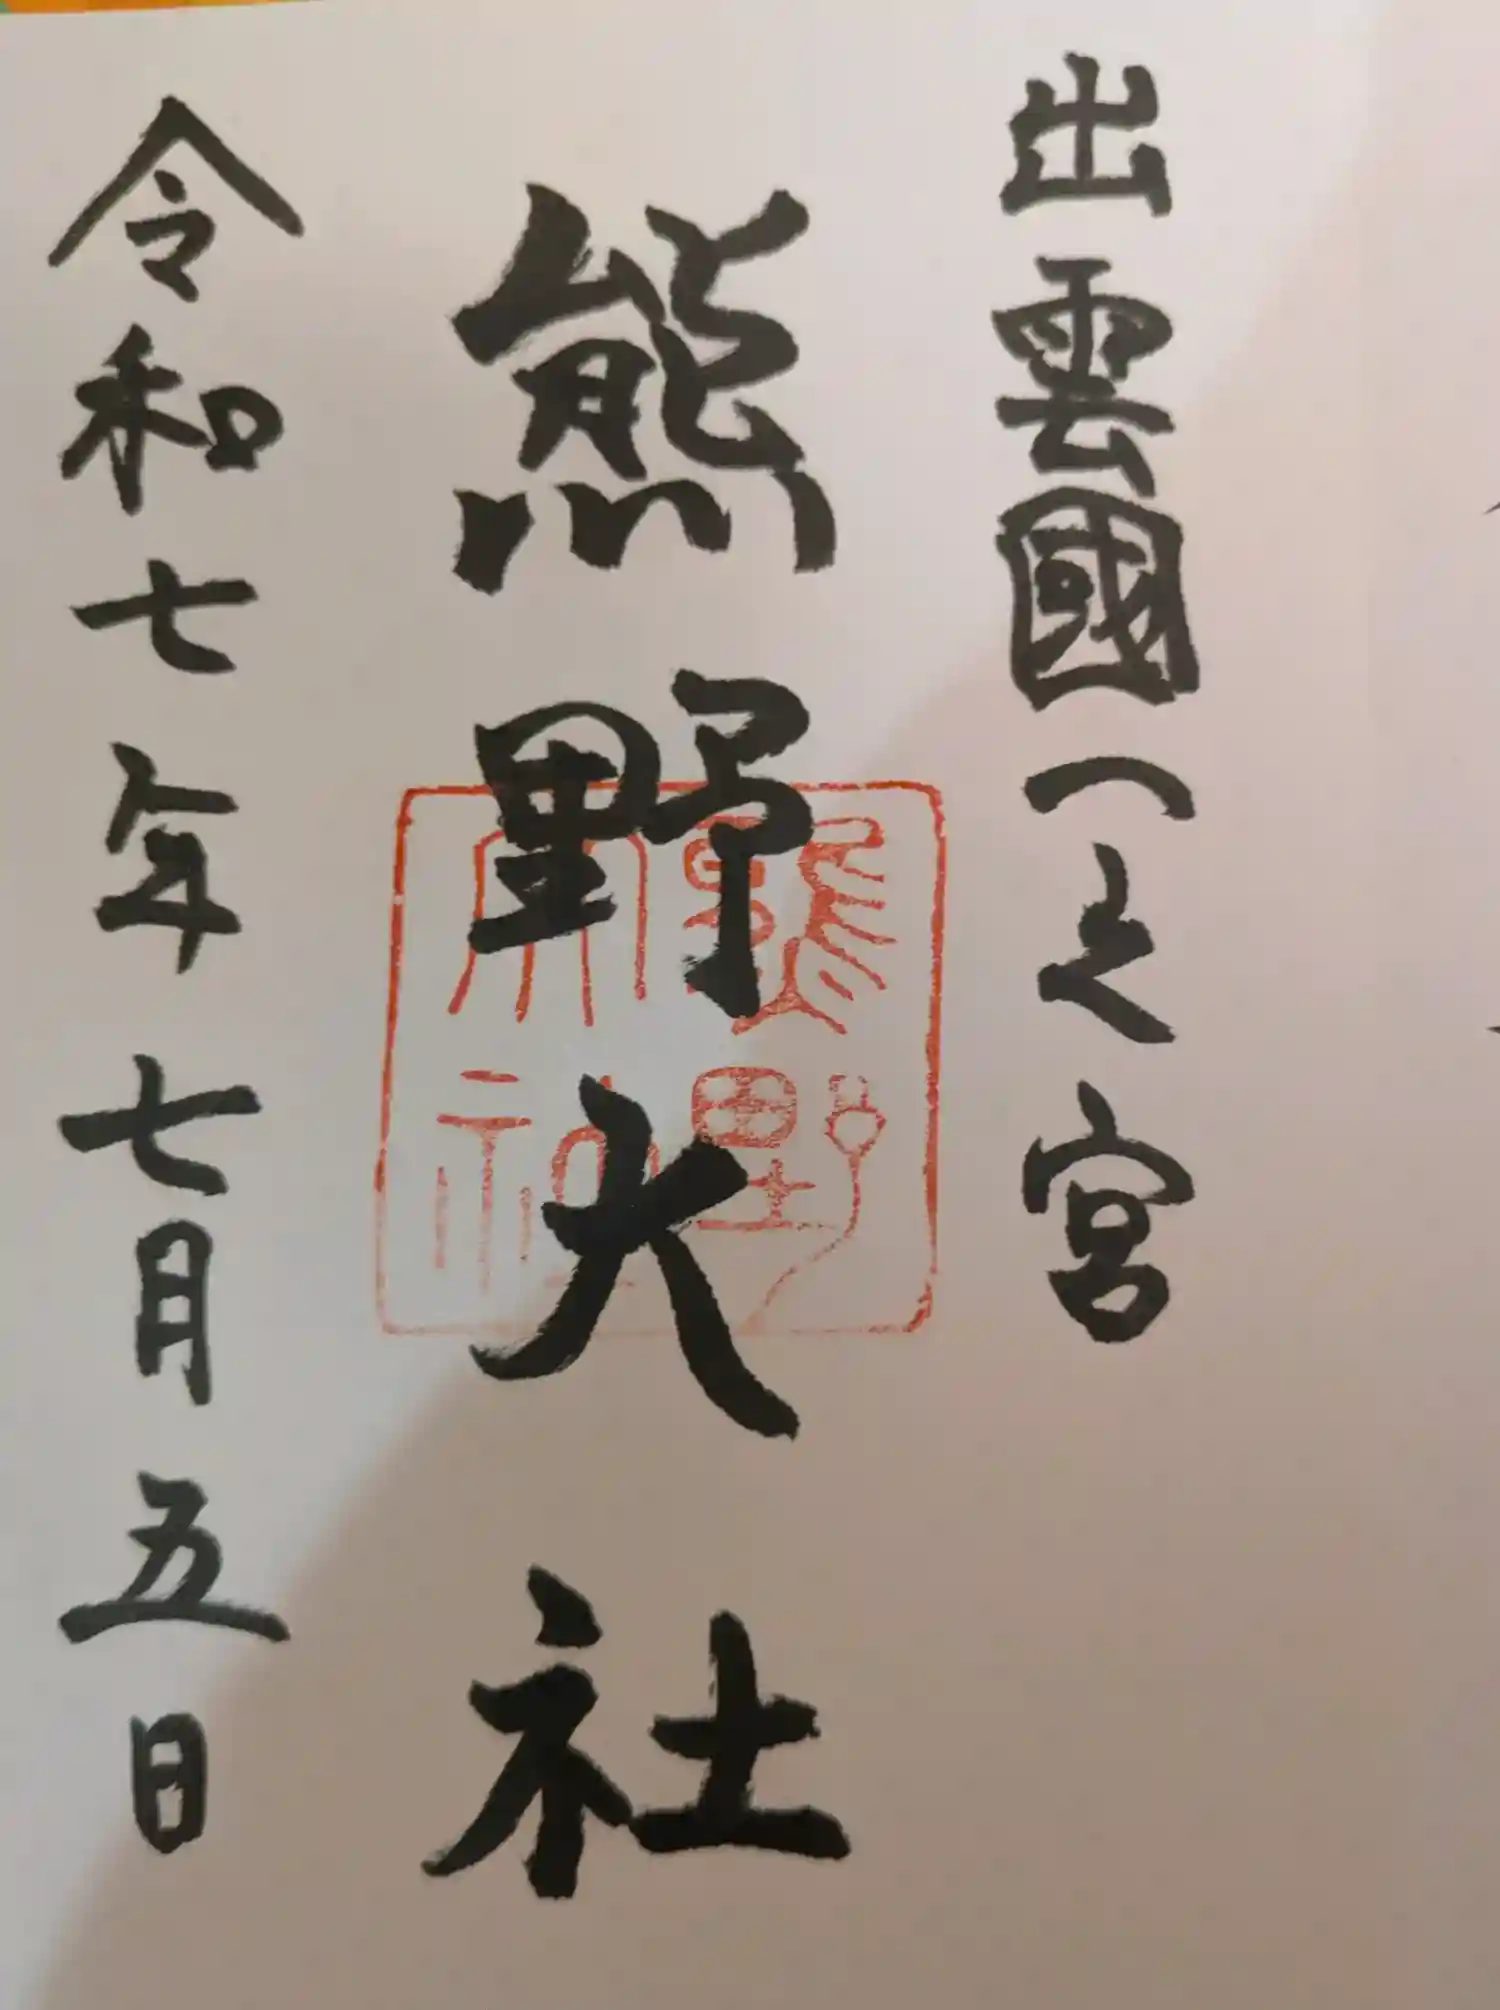 出雲國一之宮
熊野大社
熊野大社
令和七年七月五日